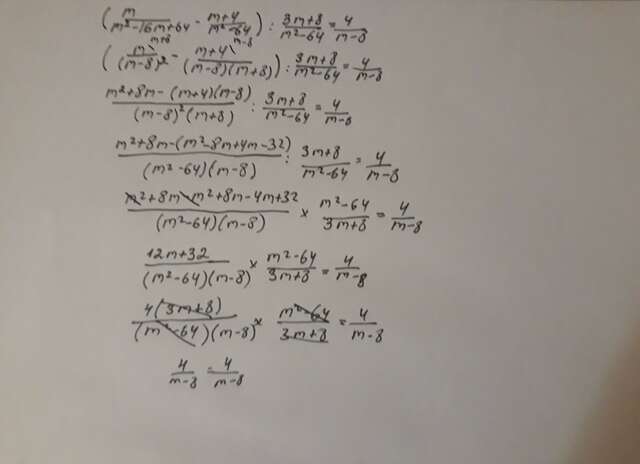 (m/(m²-16m+64) - (m+4)/(m²-64)) : (3m+8)/(m²-64) = 4/(m-8)
(m\m+8/(m-8)² - m+4\m-8/((m-8)(m+8))) : (3m+8)/(m²-64) = 4/(m-8)
(m²+8m-(m+4)(m-8))/((m-8)²(m+8)) : (3m+8)/(m²-64) = 4/(m-8)
(m²+8m-(m²-8m+4m-32))/((m²-64)(m-8)) : (3m+8)/(m²-64) = 4/(m-8)
(m²+8m-m²+8m-4m+32)/((m²-64)(m-8)) × (m²-64)/(3m+8) = 4/(m-8)
(12m+32)/((m²-64)(m-8)) × (m²-64)/(3m+8) = 4/(m-8)
4(3m+8)/((m²-64)(m-8)) × (m²-64)/(3m+8) = 4/(m-8)
4/(m-8) = 4/(m-8)